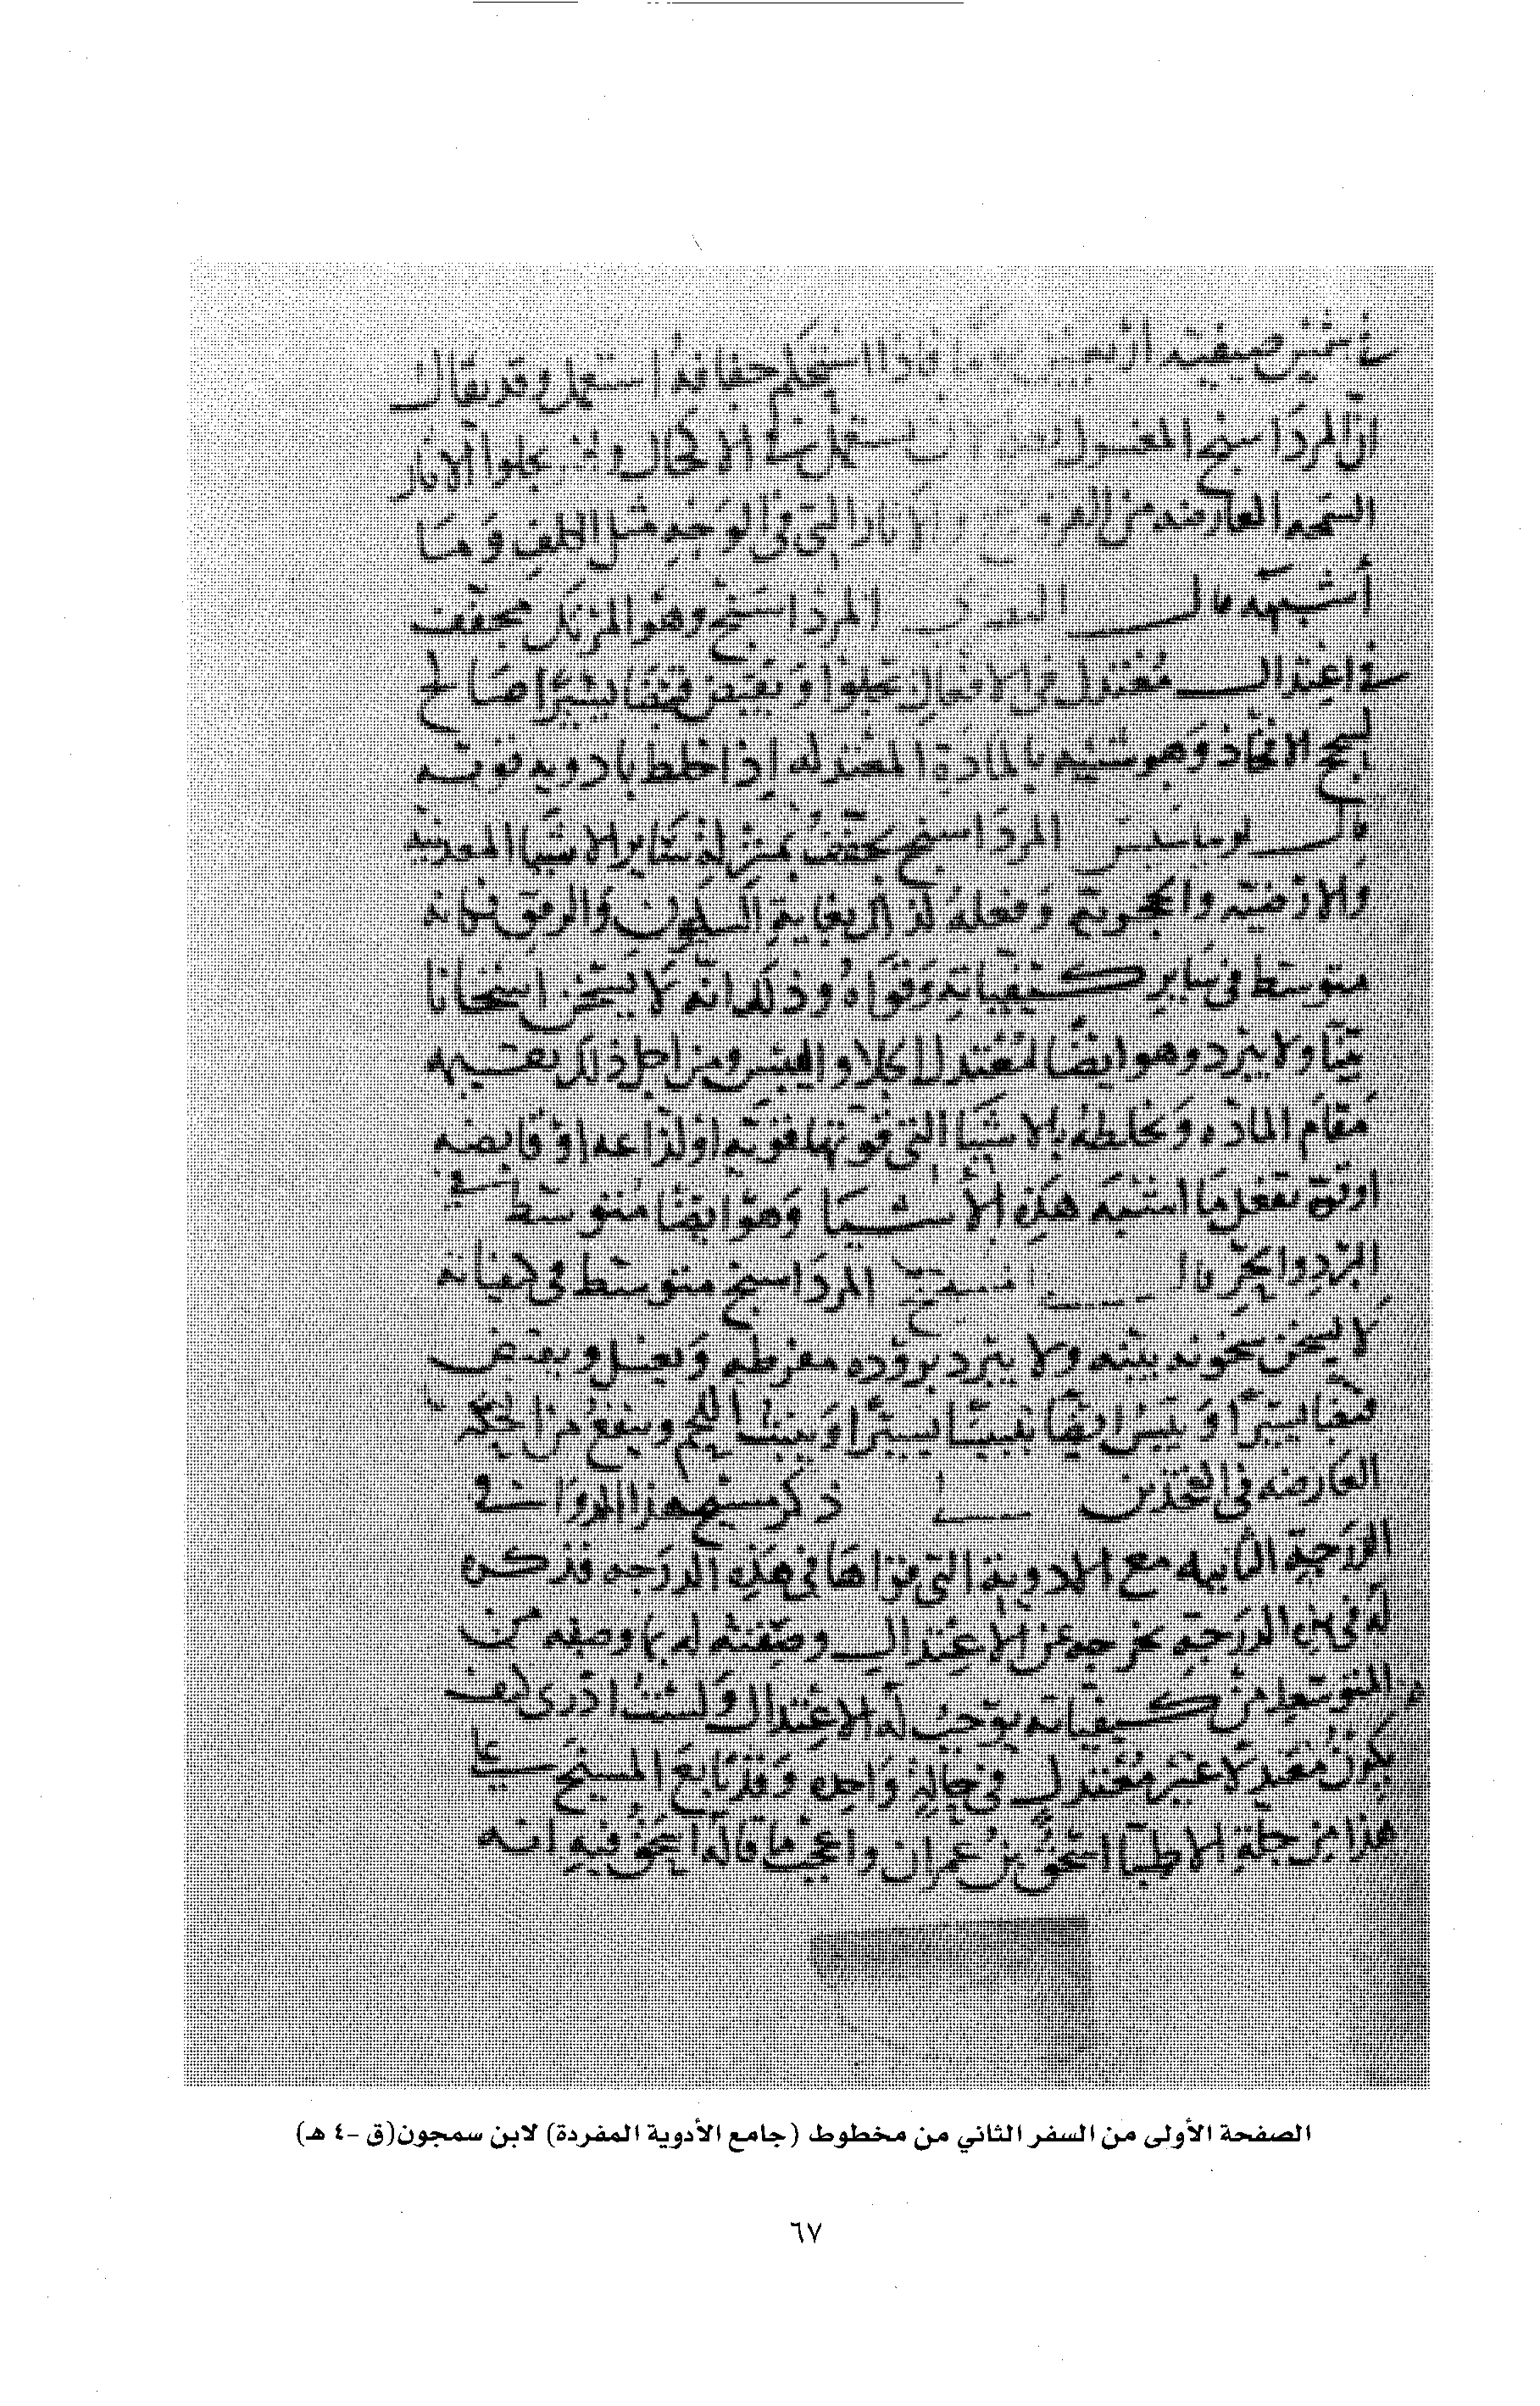 في شمس صيفية اربعين فاذا استحكم جفافه استعمل وقد يقال
ان المرداسنج المغسول يستعمل في الاكحال وقد يجلوا الاثار
السمجه العارضه من القروح والاثار التي في الوجه مثل الكلف وما
أشبهه قال المرداسنج وهو المرتك مجفف
في اعتدال معتدل في الافعال يجلوا ويقبض قبضا يسيرا صالح
وهو شبيه بالمادة المعتدله إذا خلط بادويه قويه
قال المرداسنج يجفف بمنزلة سائر الاشيا المعدنيه
والارضية والحجرية وفعله لذلك بغاية السكون والرفق فانه
متوسط في ساير كيفياته وقواه وذلك انه لا يسخن اسخانا
بينا ولا يبرد وهو ايضا معتدل الجلاء واليبس ومن اجل ذلك
مقام الماده وتخلطه بالاشيا التي قوتها قوية او لذاعه او قابضه
او تفعل ما اشبه هذه الأشيا وهو ايضا متوسط في
البرد والحر قال مسيح المرداسنج متوسط في كيفياته
لا يسخن سخونه بينه ولا يبرد بروده مفرطه ويغسل ويقبض
قبضا يسيرا وييبس ايضا تيبيسا يسيرا وينبت اللحم وينفع من الحكه
العارضه في الفخذين ذكر مسيح هذا الدوا في
الدرجة الثانيه مع الادوية التي قواها في هذه الدرجه فذكره
له في هذه الدرجة يخرجه عن الاعتدال وصفته له بما وصفه من
المتوسط من كيفياته توجب له الاعتدال ولست ادري كيف
يكون معتدلا غير معتدل في حالة واحده وقد تابع المسيح
هذا من جلة الاطبا اسحق بن عمران واعجب ما قاله اسحق فيه انه
الصفحة الأولى من السفر الثاني من مخطوط (جامع الأدوية المفردة) لابن سمجون (ق -٤ هـ)
٦٧